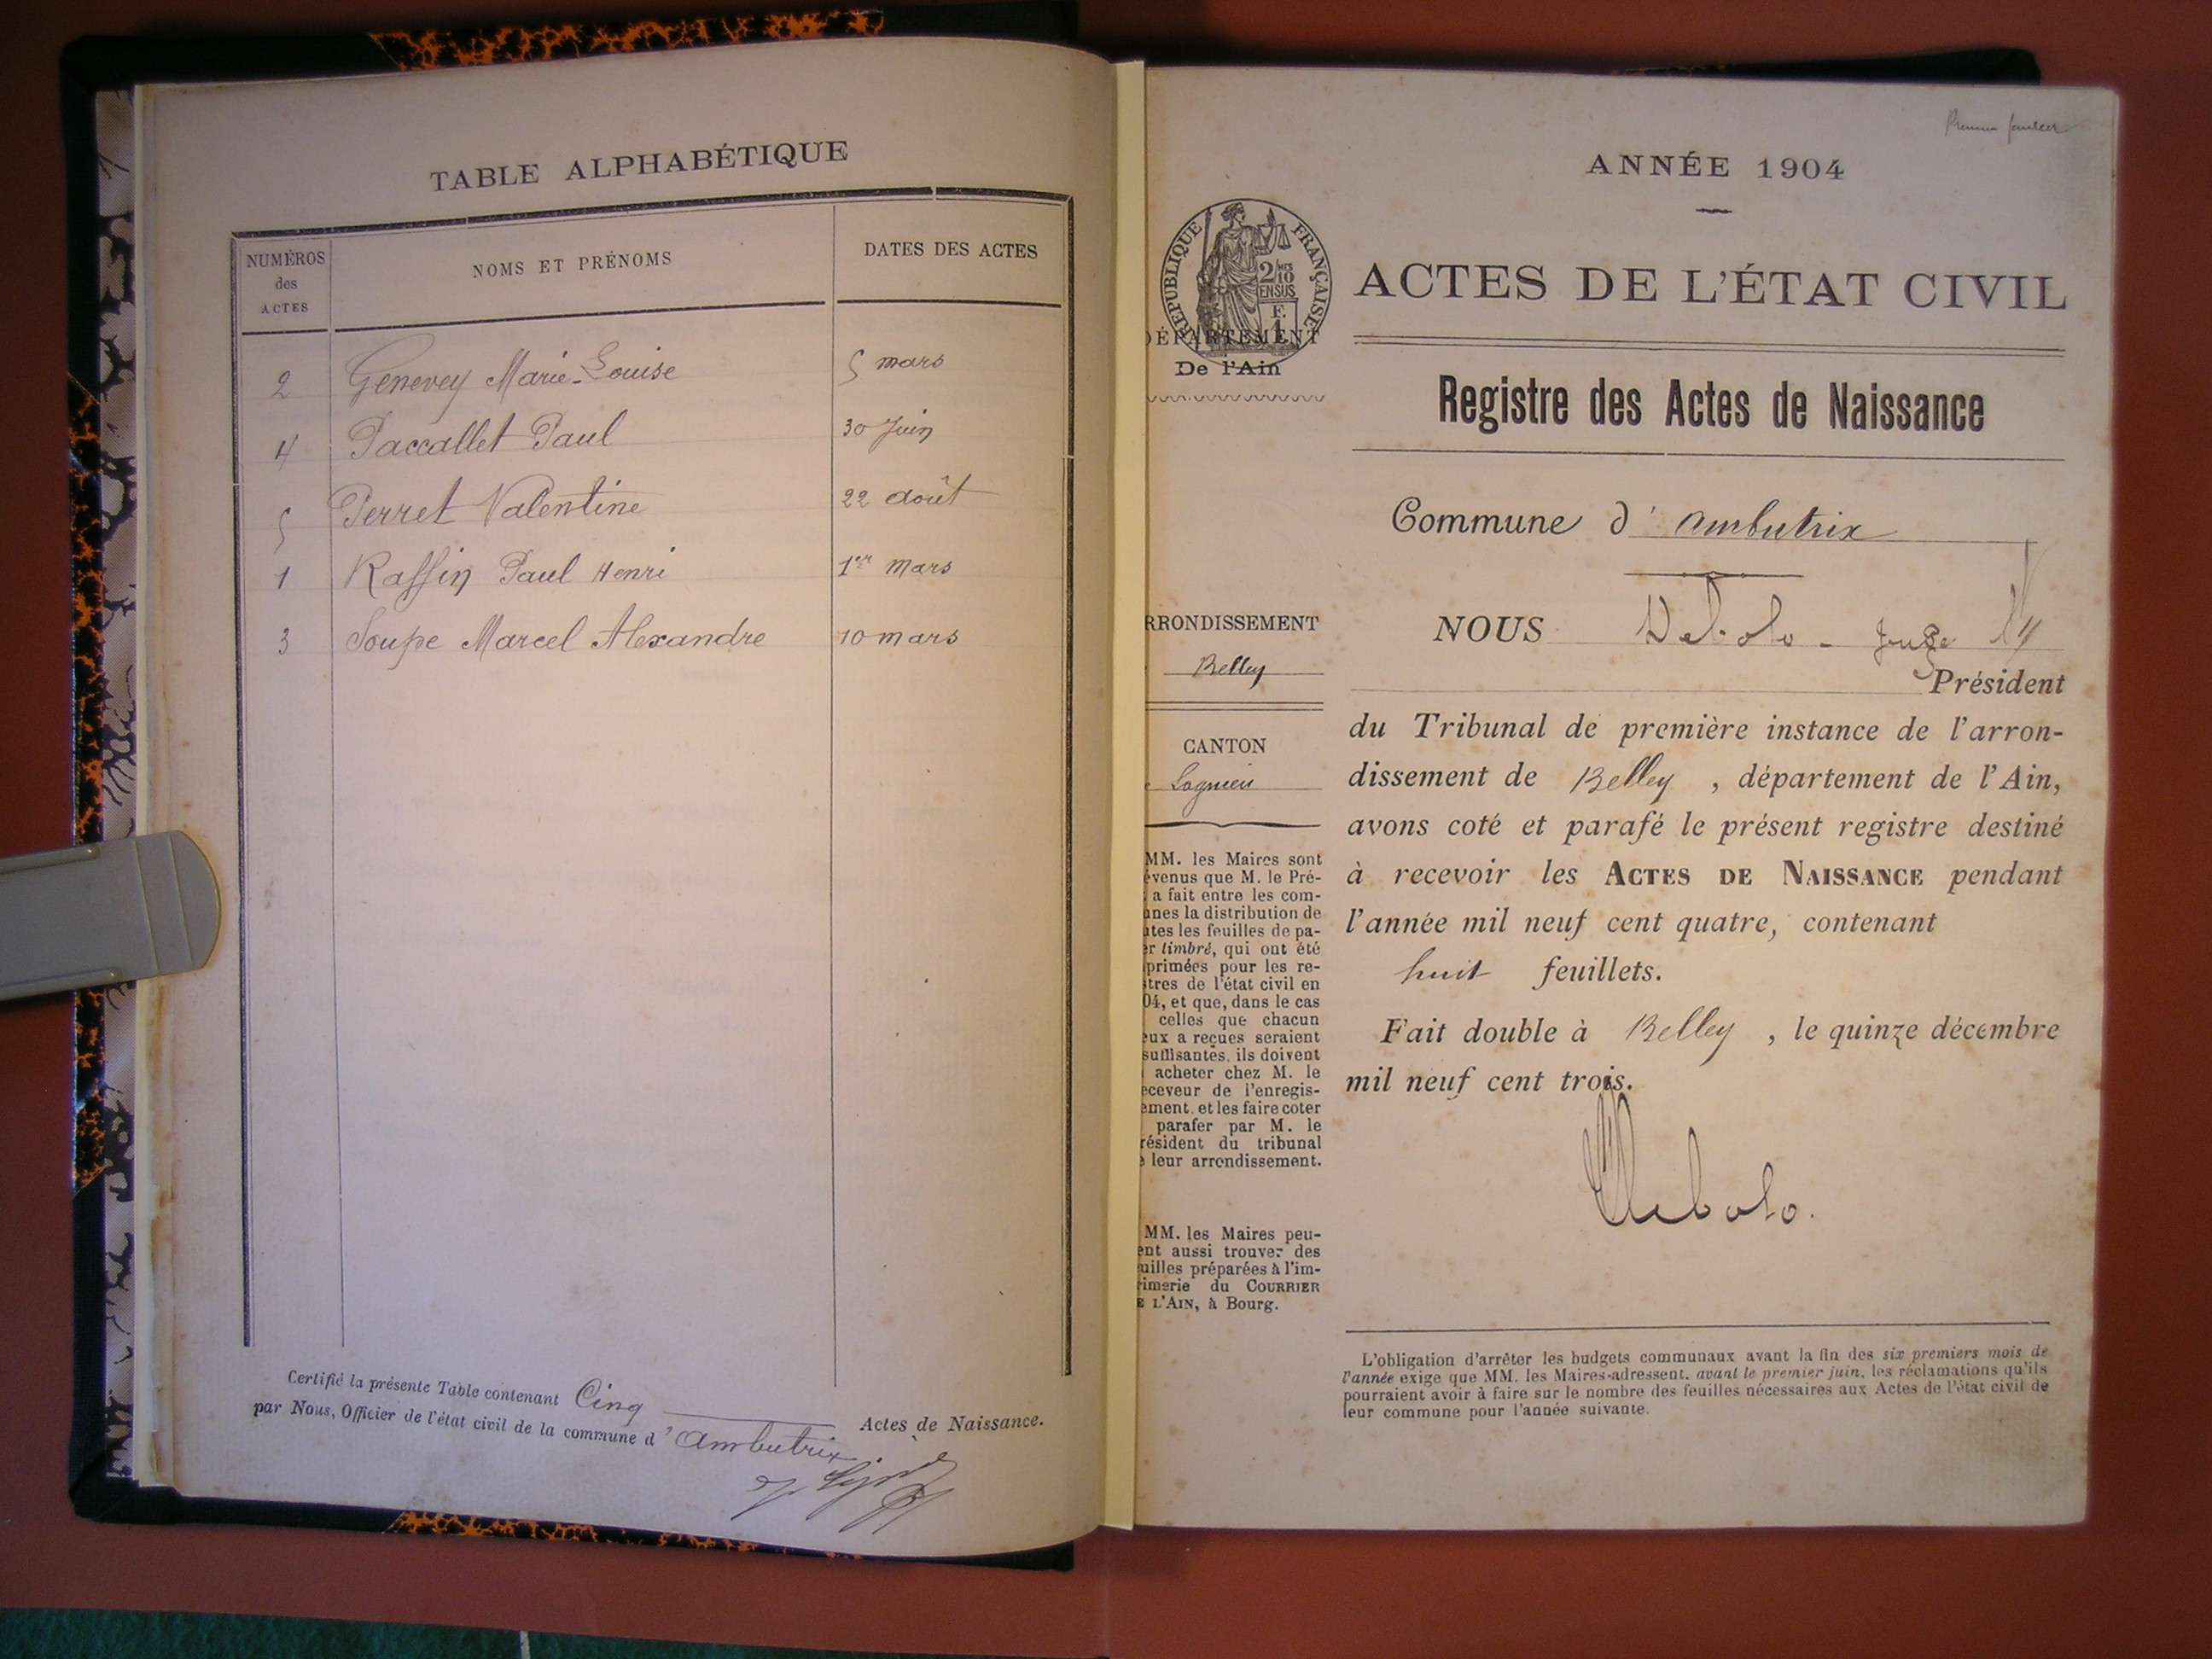 TABLE ALPHABÉTIQUE
NUMÉROS
des
ACTES
NOMS ET PRÉNOMS
DATES DES ACTES
2 Genevey Marie-Louise 5 mars
4 Paccallet Paul 30 Juin
5 Perret Valentine 22 août
1 Raffin Paul Henri 1er mars
3 Soupe Marcel Alexandre 10 mars
Certifié la présente Table contenant Cinq Actes de Naissance.
par Nous, Officier de l'état civil de la commune d'Ambutrix
ANNÉE 1904
RÉPUBLIQUE FRANÇAISE
2/10
EN SUS
F.
1
ACTES DE L'ÉTAT CIVIL
DÉPARTEMENT
De l'Ain
Registre des Actes de Naissance
Commune d'ambutrix
ARRONDISSEMENT
Belley
CANTON
Lagnieu
NOUS Debolo - Juge
Président
du Tribunal de première instance de l'arron-
dissement de Belley, département de l'Ain,
avons coté et parafé le présent registre destiné
à recevoir les ACTES DE NAISSANCE pendant
l'année mil neuf cent quatre, contenant
huit feuillets.
Fait double à Belley, le quinze décembre
mil neuf cent trois.
Debolo.
MM. les Maires sont
évenus que M. le Pré-
a fait entre les com-
unes la distribution de
utes les feuilles de pa-
er timbré, qui ont été
primées pour les re-
stres de l'état civil en
04, et que, dans le cas
celles que chacun
eux a reçues seraient
suffisantes, ils doivent
acheter chez M. le
eceveur de l'enregis-
ement, et les faire coter
parafer par M. le
résident du tribunal
e leur arrondissement.
MM. les Maires peu-
ent aussi trouver des
uilles préparées à l'im-
rimerie du COURRIER
E L'AIN, à Bourg.
L'obligation d'arrêter les budgets communaux avant la fin des six premiers mois de
l'année exige que MM. les Maires adressent, avant le premier juin, les réclamations qu'ils
pourraient avoir à faire sur le nombre des feuilles nécessaires aux Actes de l'état civil de
leur commune pour l'année suivante.